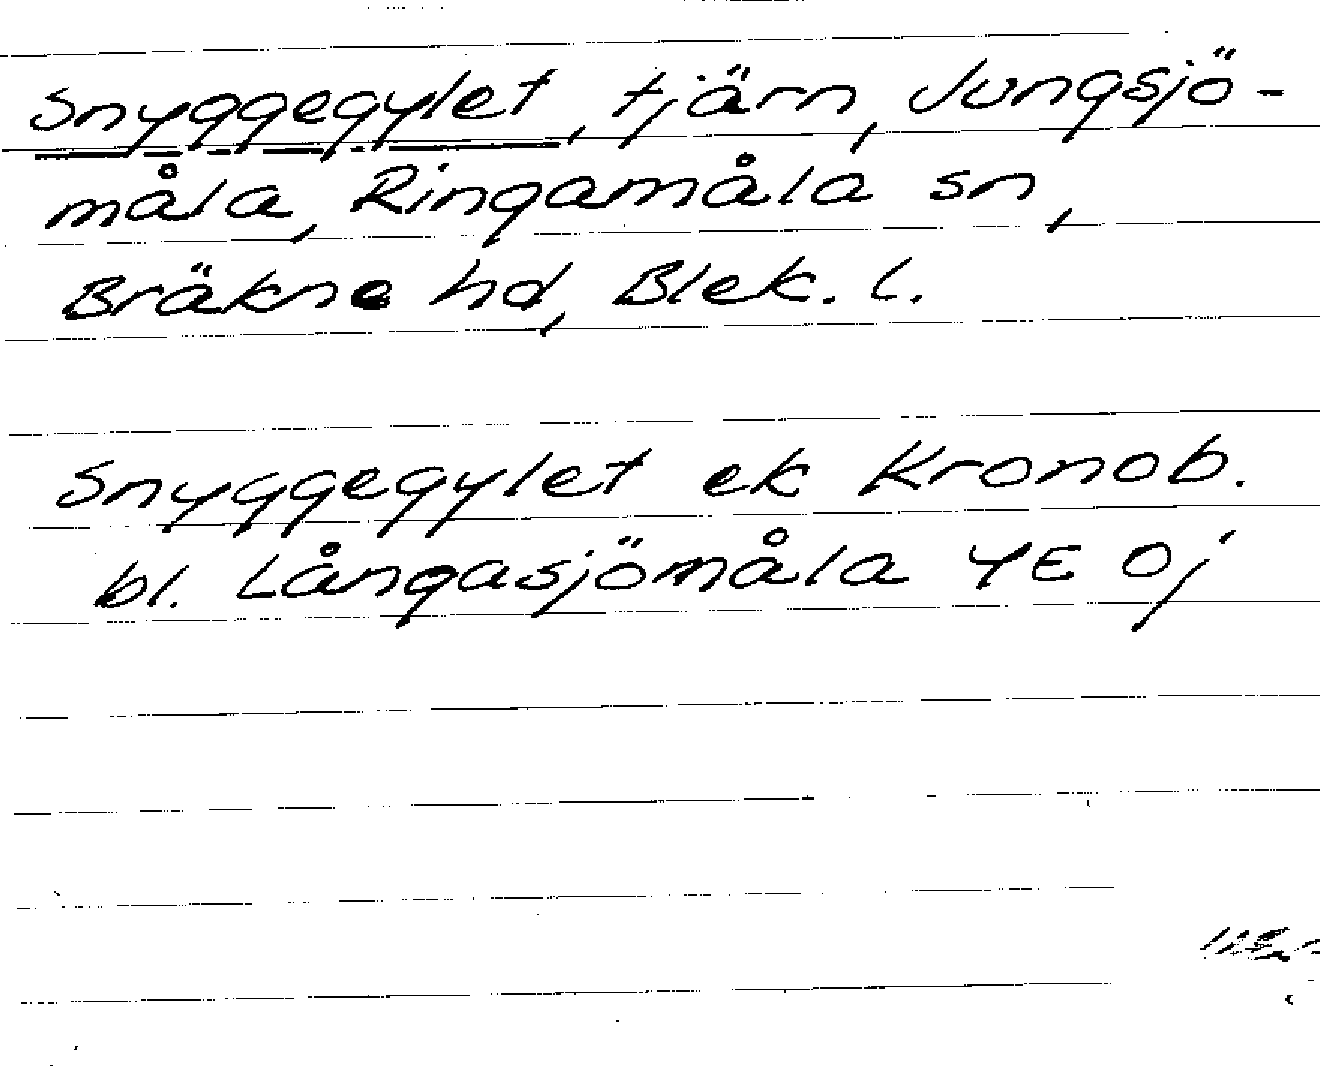 Snyggegylet, tjärn, Jungsjö-
måla, Ringamåla sn,
Bräkne hd, Blek. l.
Snyggegylet ek Kronob.
bl. Långasjömåla 4E Oj